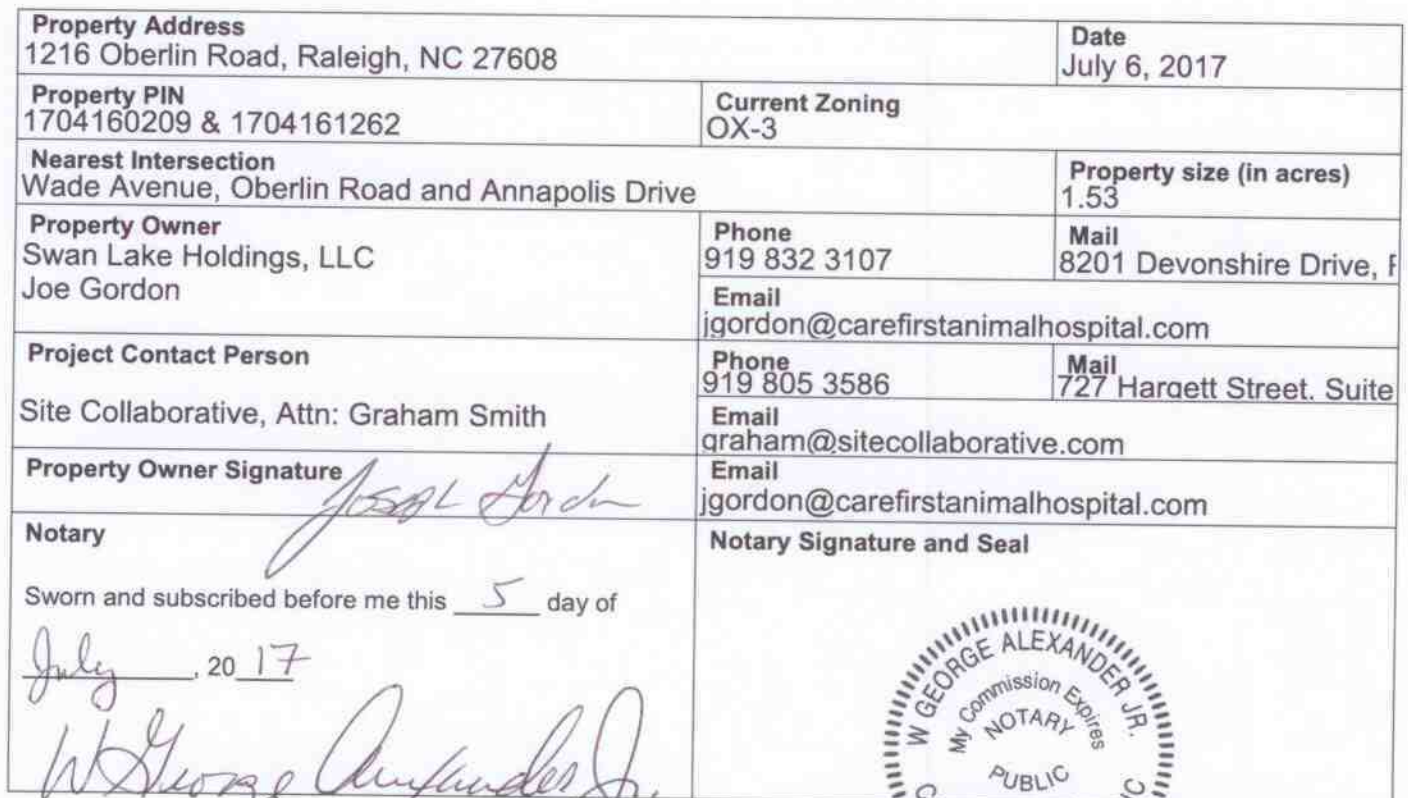 Property Address
1216 Oberlin Road, Raleigh, NC 27608
Date
July 6, 2017
Property PIN
1704160209 & 1704161262
Current Zoning
OX-3
Nearest Intersection
Wade Avenue, Oberlin Road and Annapolis Drive
Property size (in acres)
1.53
Property Owner
Swan Lake Holdings, LLC
Joe Gordon
Phone
919 832 3107
Mail
8201 Devonshire Drive,
Email
jgordon@carefirstanimalhospital.com
Project Contact Person
Site Collaborative, Attn: Graham Smith
Phone
919 805 3586
Mail
727 Hargett Street. Suite
Email
graham@sitecollaborative.com
Property Owner Signature
Joseph Gordon
Email
jgordon@carefirstanimalhospital.com
Notary
Sworn and subscribed before me this 5 day of
July, 20 17
W George Alexander Jr.
Notary Signature and Seal
W GEORGE ALEXANDER JR.
My Commission Expires
NOTARY
PUBLIC